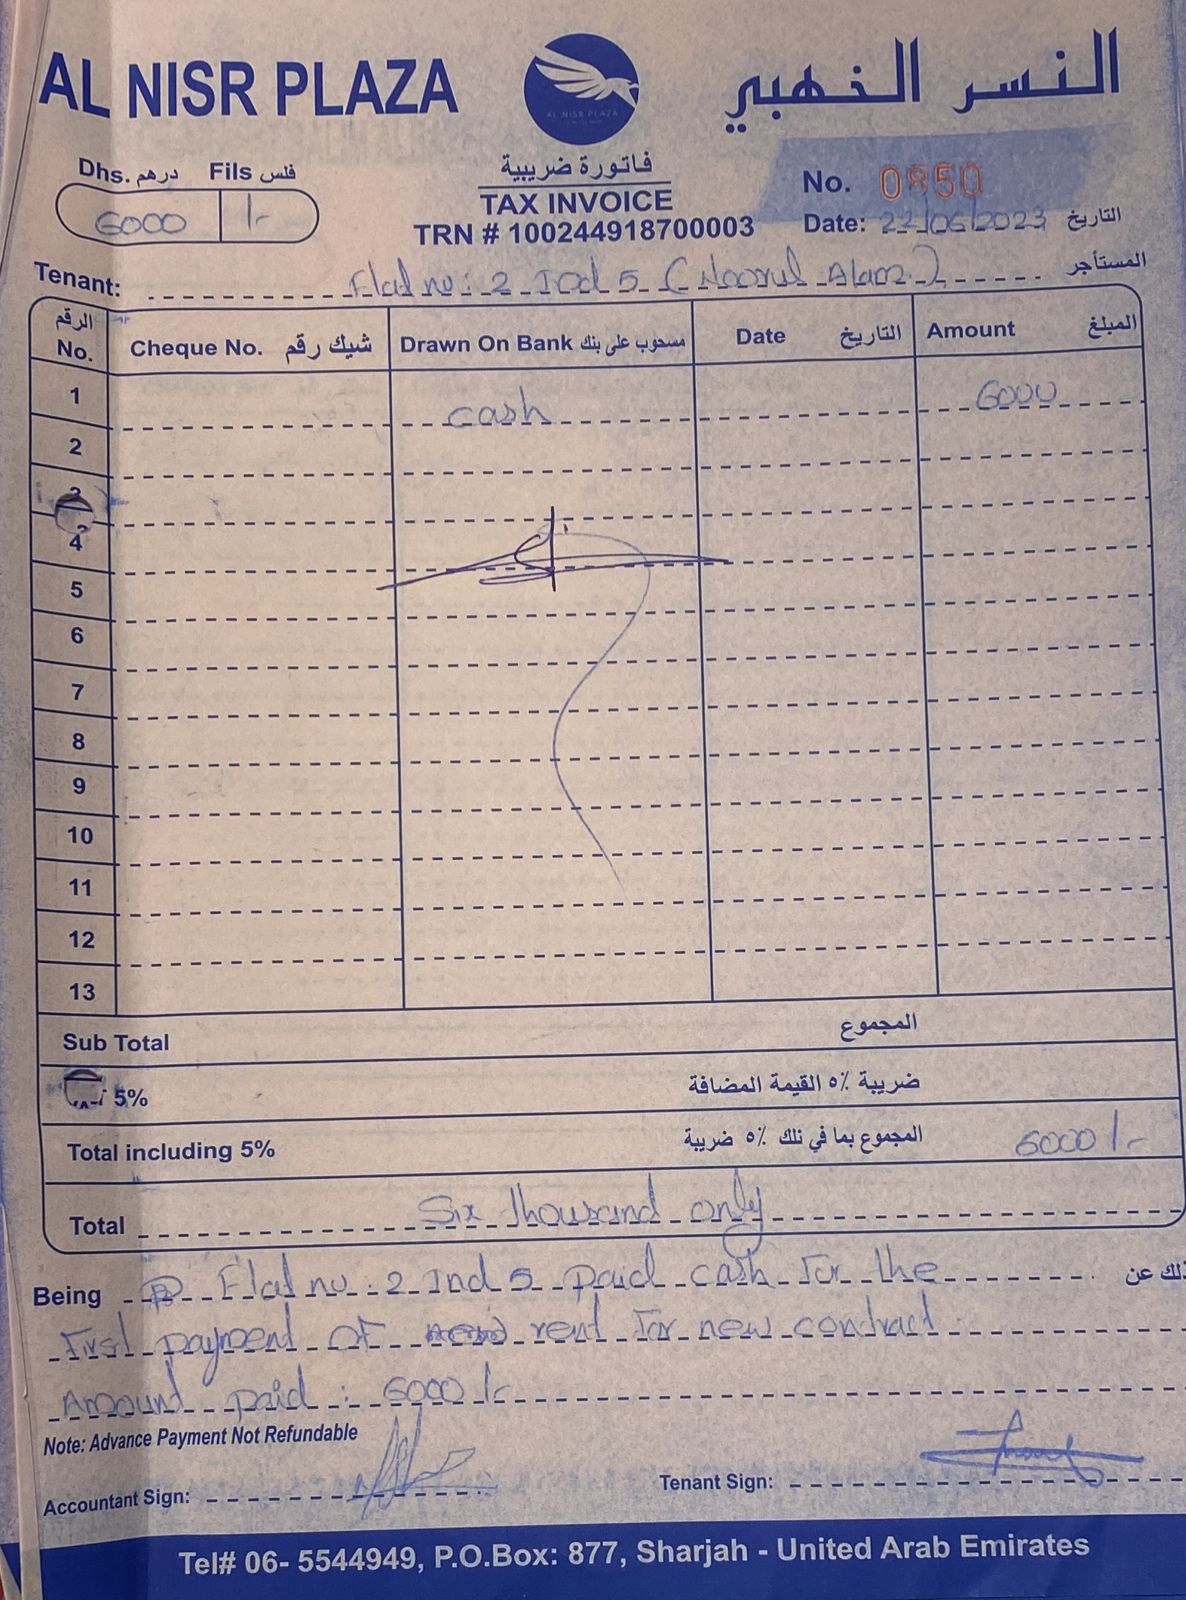 AL NISR PLAZA
النسر الذهبي
AL NISR PLAZA
Dhs. درهم Fils فلس
6000 /-
فاتورة ضريبية
TAX INVOICE
TRN # 100244918700003
No. 0850
Date: 22/06/2023 التاريخ
Tenant: Flat no: 2 Ind 5 (Noorul Alam) المستأجر
الرقم No. Cheque No. شيك رقم Drawn On Bank مسحوب على بنك Date التاريخ Amount المبلغ
1 cash 6000
2
3
4
5
6
7
8
9
10
11
12
13
Sub Total المجموع
5% ضريبة ٥٪ القيمة المضافة
Total including 5% المجموع بما في تلك ٥٪ ضريبة 6000/-
Total Six thousand only
Being Flat no: 2 Ind 5 paid cash for the ذلك عن
First payment of rent for new contract
Amount paid: 6000/-
Note: Advance Payment Not Refundable
Accountant Sign:
Tenant Sign:
Tel# 06- 5544949, P.O.Box: 877, Sharjah - United Arab Emirates